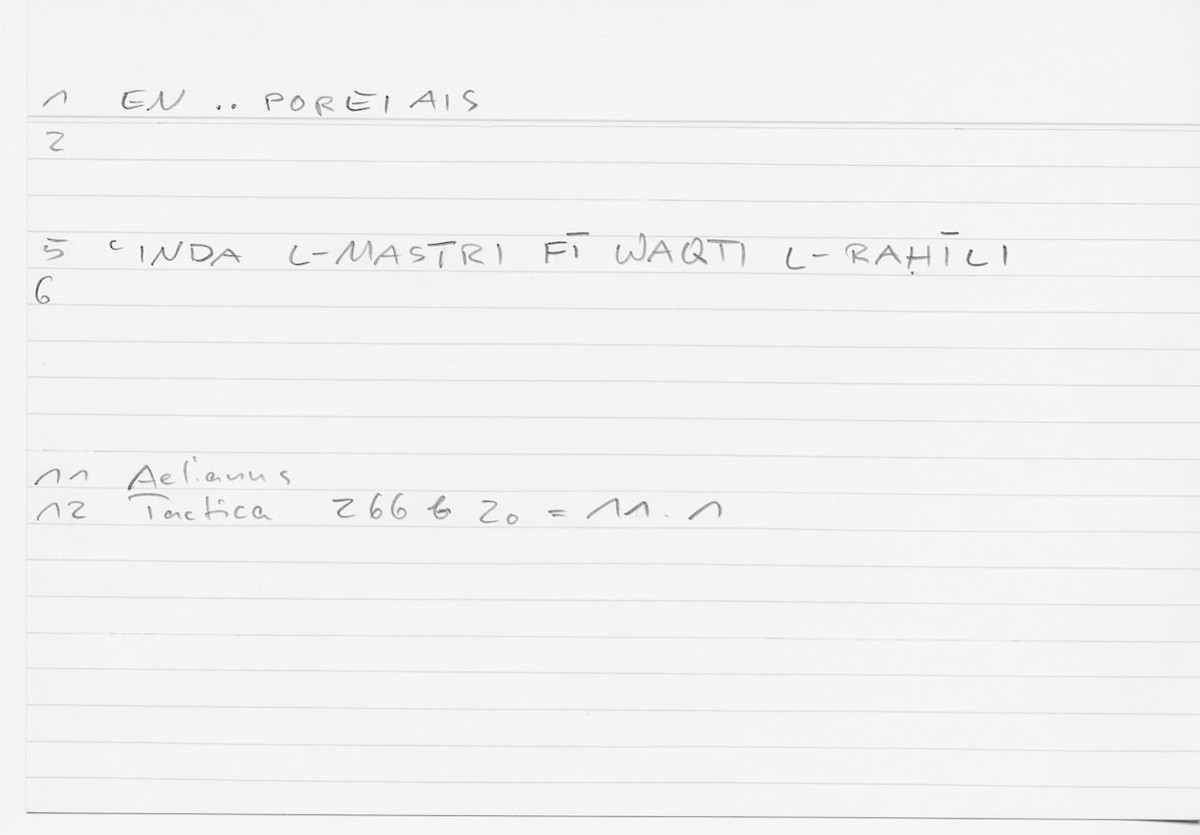 1 EN .. POREIAIS
2
5 ʿINDA L-MASTRI FĪ WAQTI L-RAḤĪLI
6
11 Aelianus
12 Tactica 266 b 20 = 11.1